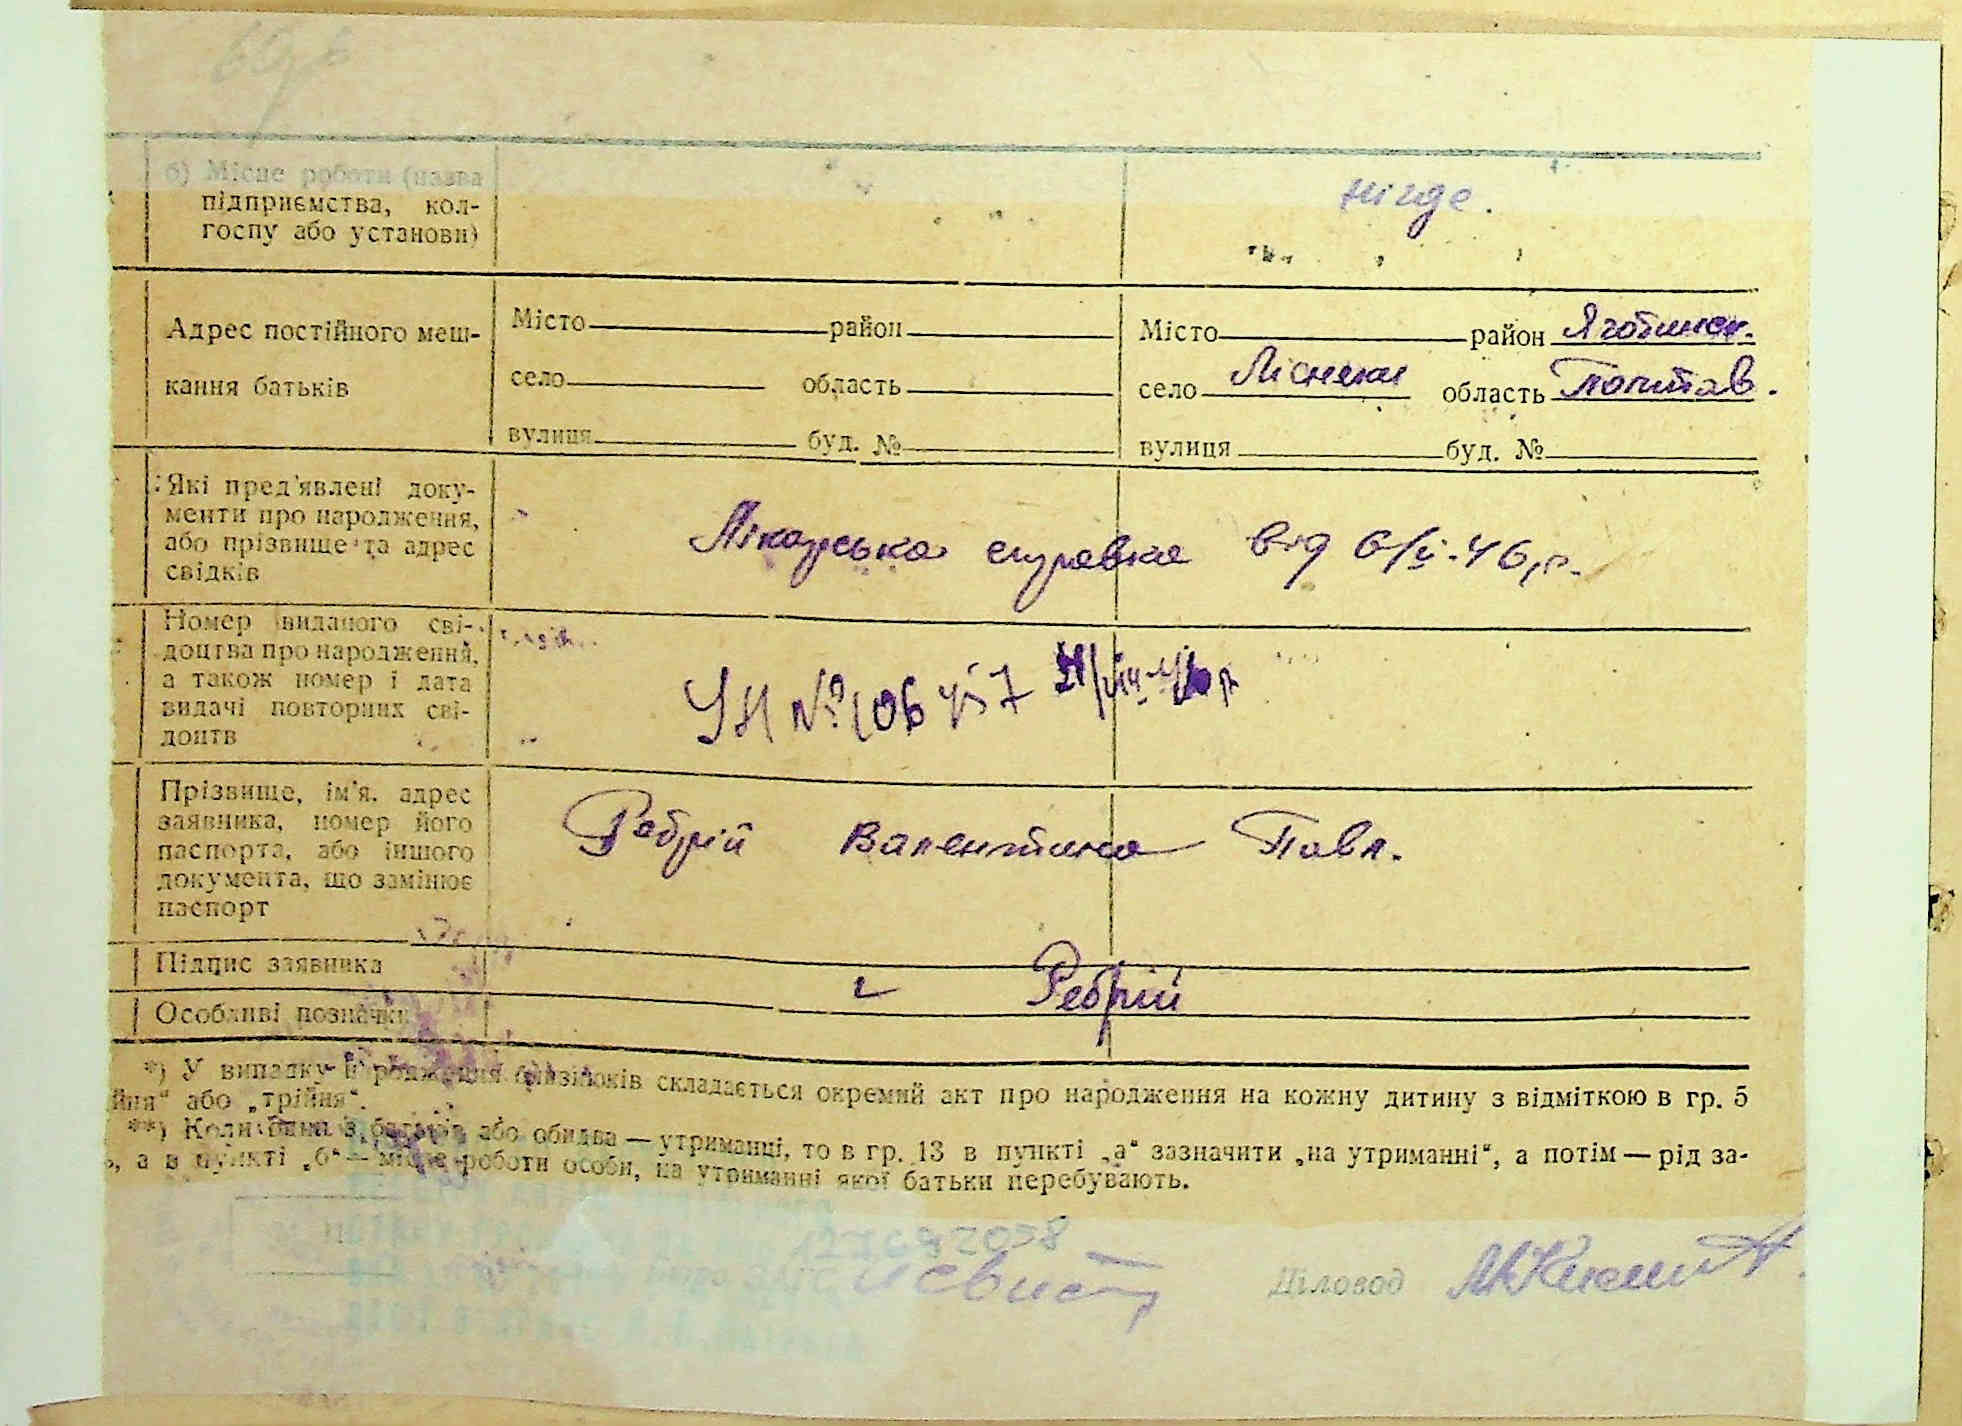 б) Місце роботи (назва
підприємства, кол-
госпу або установи)
нігде.
Адрес постійного меш-
кання батьків
Місто район
село область
вулиця буд. №
Місто район Яготинск.
село Лісняки область Полтав.
вулиця буд. №
Які пред'явлені доку-
менти про народження,
або прізвище та адрес
свідків
Лікарська справка від 6/V-46 р.
Номер виданого сві-
доцтва про народження,
а також номер і дата
видачі повторних сві-
доцтв
№ 106457
Прізвище, ім'я, адрес
заявника, номер його
паспорта, або іншого
документа, що замінює
паспорт
Ребрій Валентина Павл.
Підпис заявника
Ребрій
Особливі позначки
*) У випадку народження близнюків складається окремий акт про народження на кожну дитину з відміткою в гр. 5
йня" або „трійня".
**) Коли один з батьків або обидва — утриманці, то в гр. 13 в пункті „а" зазначити „на утриманні", а потім — рід за-
, а в пункті „б" — місце роботи особи, на утриманні якої батьки перебувають.
Діловод